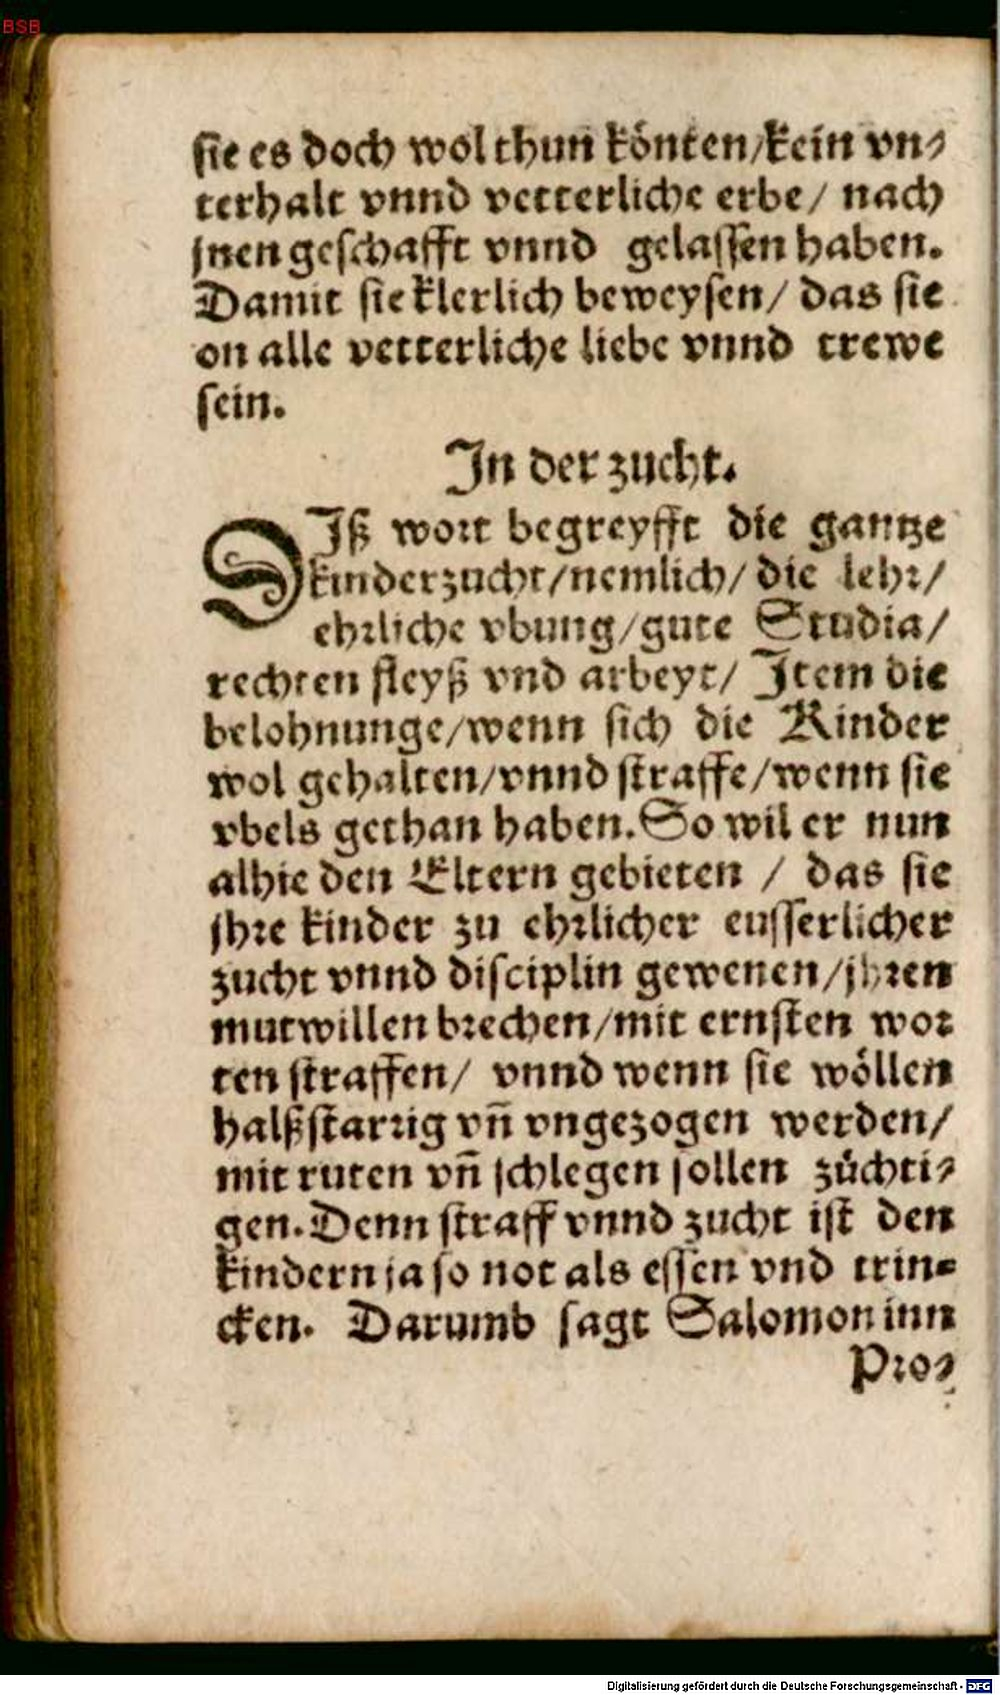 BSB
sie es doch wol thun könten/kein vn⸗
terhalt vnnd vetterliche erbe/ nach
jnen geschafft vnnd gelassen haben.
Damit sie klerlich beweysen/ das sie
on alle vetterliche liebe vnnd trewe
sein.
In der zucht.
DIß wort begreyfft die gantze
kinderzucht/nemlich/ die lehr/
ehrliche vbung/gute Studia/
rechten fleyß vnd arbeyt/ Item die
belohnunge/wenn sich die Kinder
wol gehalten/vnnd straffe/wenn sie
vbels gethan haben. So wil er nun
alhie den Eltern gebieten / das sie
jhre kinder zu ehrlicher eusserlicher
zucht vnnd disciplin gewenen/jhren
mutwillen brechen/mit ernsten wor
ten straffen/ vnnd wenn sie wöllen
halßstarrig vn̄ vngezogen werden/
mit ruten vn̄ schlegen sollen zuͤchti⸗
gen. Denn straff vnnd zucht ist den
kindern ja so not als essen vnd trin⸗
cken. Darumb sagt Salomon inn
Pro⸗
Digitalisierung gefördert durch die Deutsche Forschungsgemeinschaft - DFG